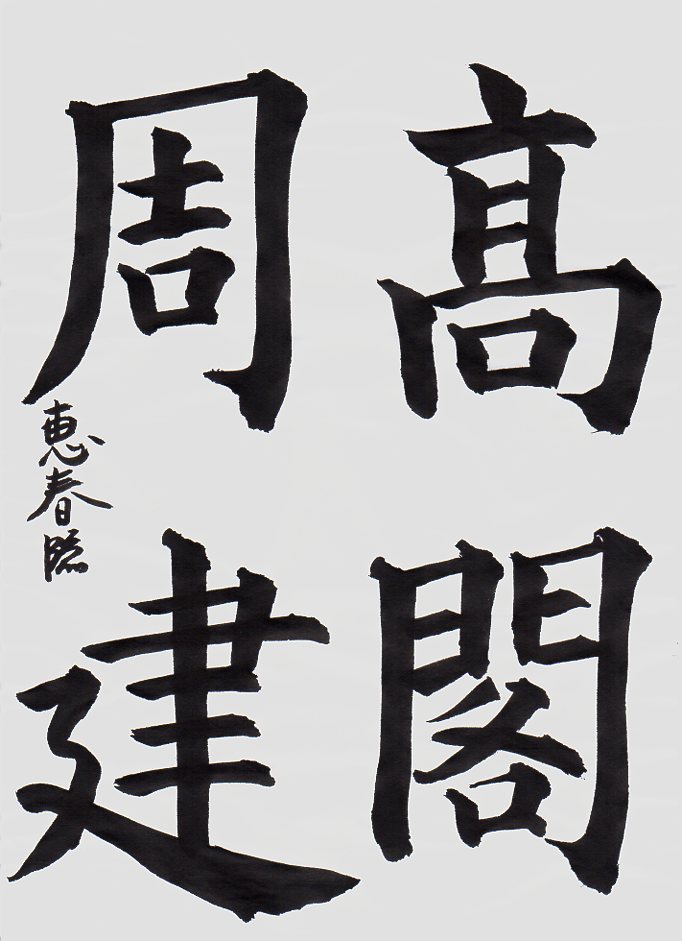 髙閣
周建
恵春臨